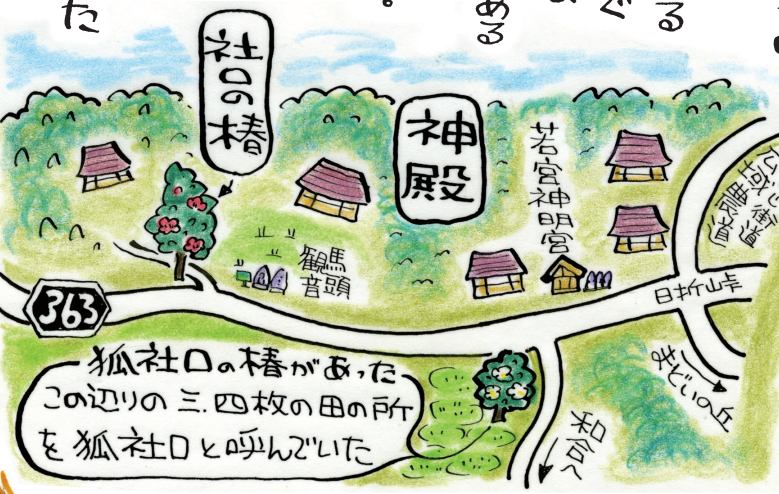 た
ある
ぐ
る
社口の椿
神殿
若宮神明宮
馬頭
観音
363
日折山峠
まどいの丘
和合へ
狐社口の椿があった
この辺りの三、四枚の田の所
を狐社口と呼んでいた